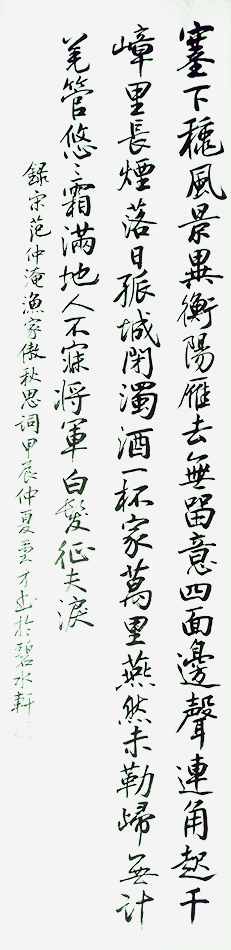 塞下秋風景異衡陽雁去無留意四面邊聲連角起千
嶂里長煙落日孤城閉濁酒一杯家萬里燕然未勒歸無計
羌管悠〻霜滿地人不寐將軍白髮征夫淚
錄宋范仲淹漁家傲秋思詞甲辰仲夏 才书於碧水軒